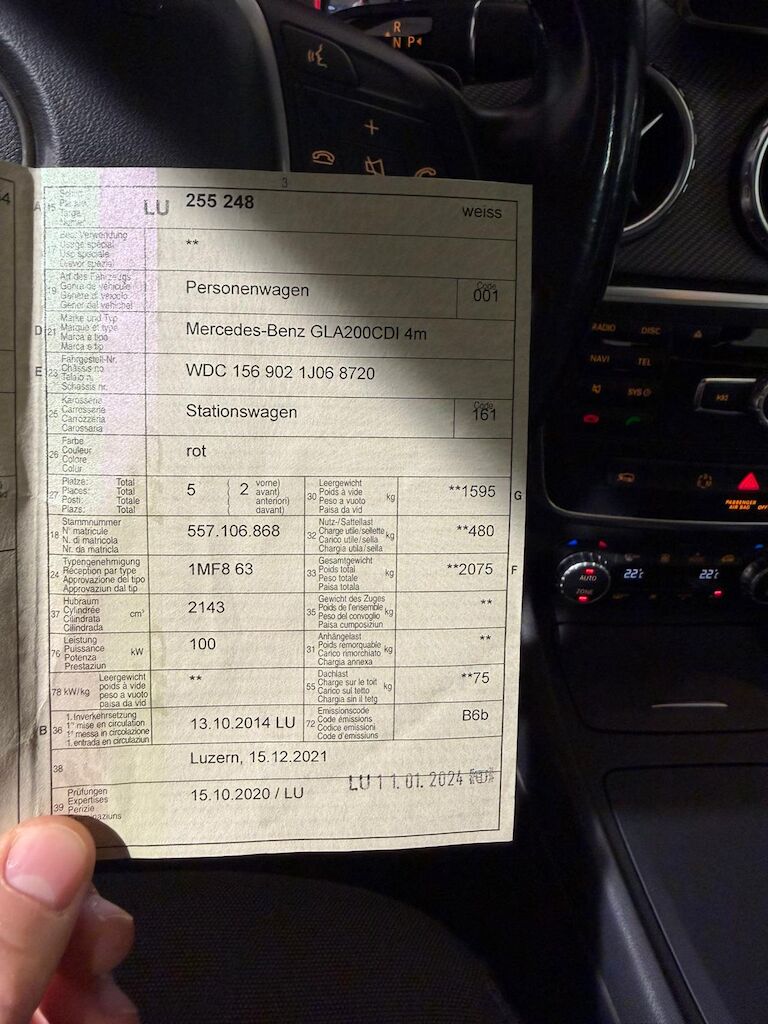 R
N P
3
A 15
LU 255 248 weiss
Bes. Verwendung
Usage spécial
Uso speciale
**
19 Art des Fahrzeugs
Genre de véhicule
Genere di veicolo
Gener dal vehichel
Personenwagen
Code
001
D 21 Marke und Typ
Marque et type
Marca e tipo
Marca e tip
Mercedes-Benz GLA200CDI 4m
E 23 Fahrgestell-Nr.
Châssis no
Telaio n.
Schassis nr.
WDC 156 902 1J06 8720
25 Karosserie
Carrosserie
Carrozzeria
Carossaria
Stationswagen
Code
161
26 Farbe
Couleur
Colore
Colur
rot
27 Plätze: Total
Places: Total
Posti: Totale
Plazs: Total
5 ( 2 vorne)
( avant)
( anteriori)
( davant)
30 Leergewicht
Poids à vide
Peso a vuoto
Paisa da vid
kg
**1595 G
18 Stammnummer
N° matricule
N. di matricola
Nr. da matricla
557.106.868
32 Nutz-/Sattellast
Charge utile/sellette
Carico utile/sella
Chargia utila/sella
kg
**480
24 Typengenehmigung
Réception par type
Approvazione del tipo
Approvaziun dal tip
1MF8 63
33 Gesamtgewicht
Poids total
Peso totale
Paisa totala
kg
**2075 F
37 Hubraum
Cylindrée
Cilindrata
Cilindrada
cm³
2143
35 Gewicht des Zuges
Poids de l'ensemble
Peso del convoglio
Paisa cumposiziun
kg
**
76 Leistung
Puissance
Potenza
Prestaziun
kW
100
31 Anhängelast
Poids remorquable
Carico rimorchiato
Chargia annexa
kg
**
78 kW/kg Leergewicht
poids à vide
peso a vuoto
paisa da vid
**
55 Dachlast
Charge sur le toit
Carico sul tetto
Chargia sin il tetg
kg
**75
B 36 1. Inverkehrsetzung
1re mise en circulation
1a messa in circolazione
1. entrada en circulaziun
13.10.2014 LU
72 Emissionscode
Code émissions
Codice emissioni
Code d'emissiuns
B6b
38
Luzern, 15.12.2021
39 Prüfungen
Expertises
Perizie
15.10.2020 / LU
LU 11.01.2024
RADIO DISC
NAVI TEL
SYS
PASSENGER
AIR BAG OFF
AUTO
ZONE
22°
22°